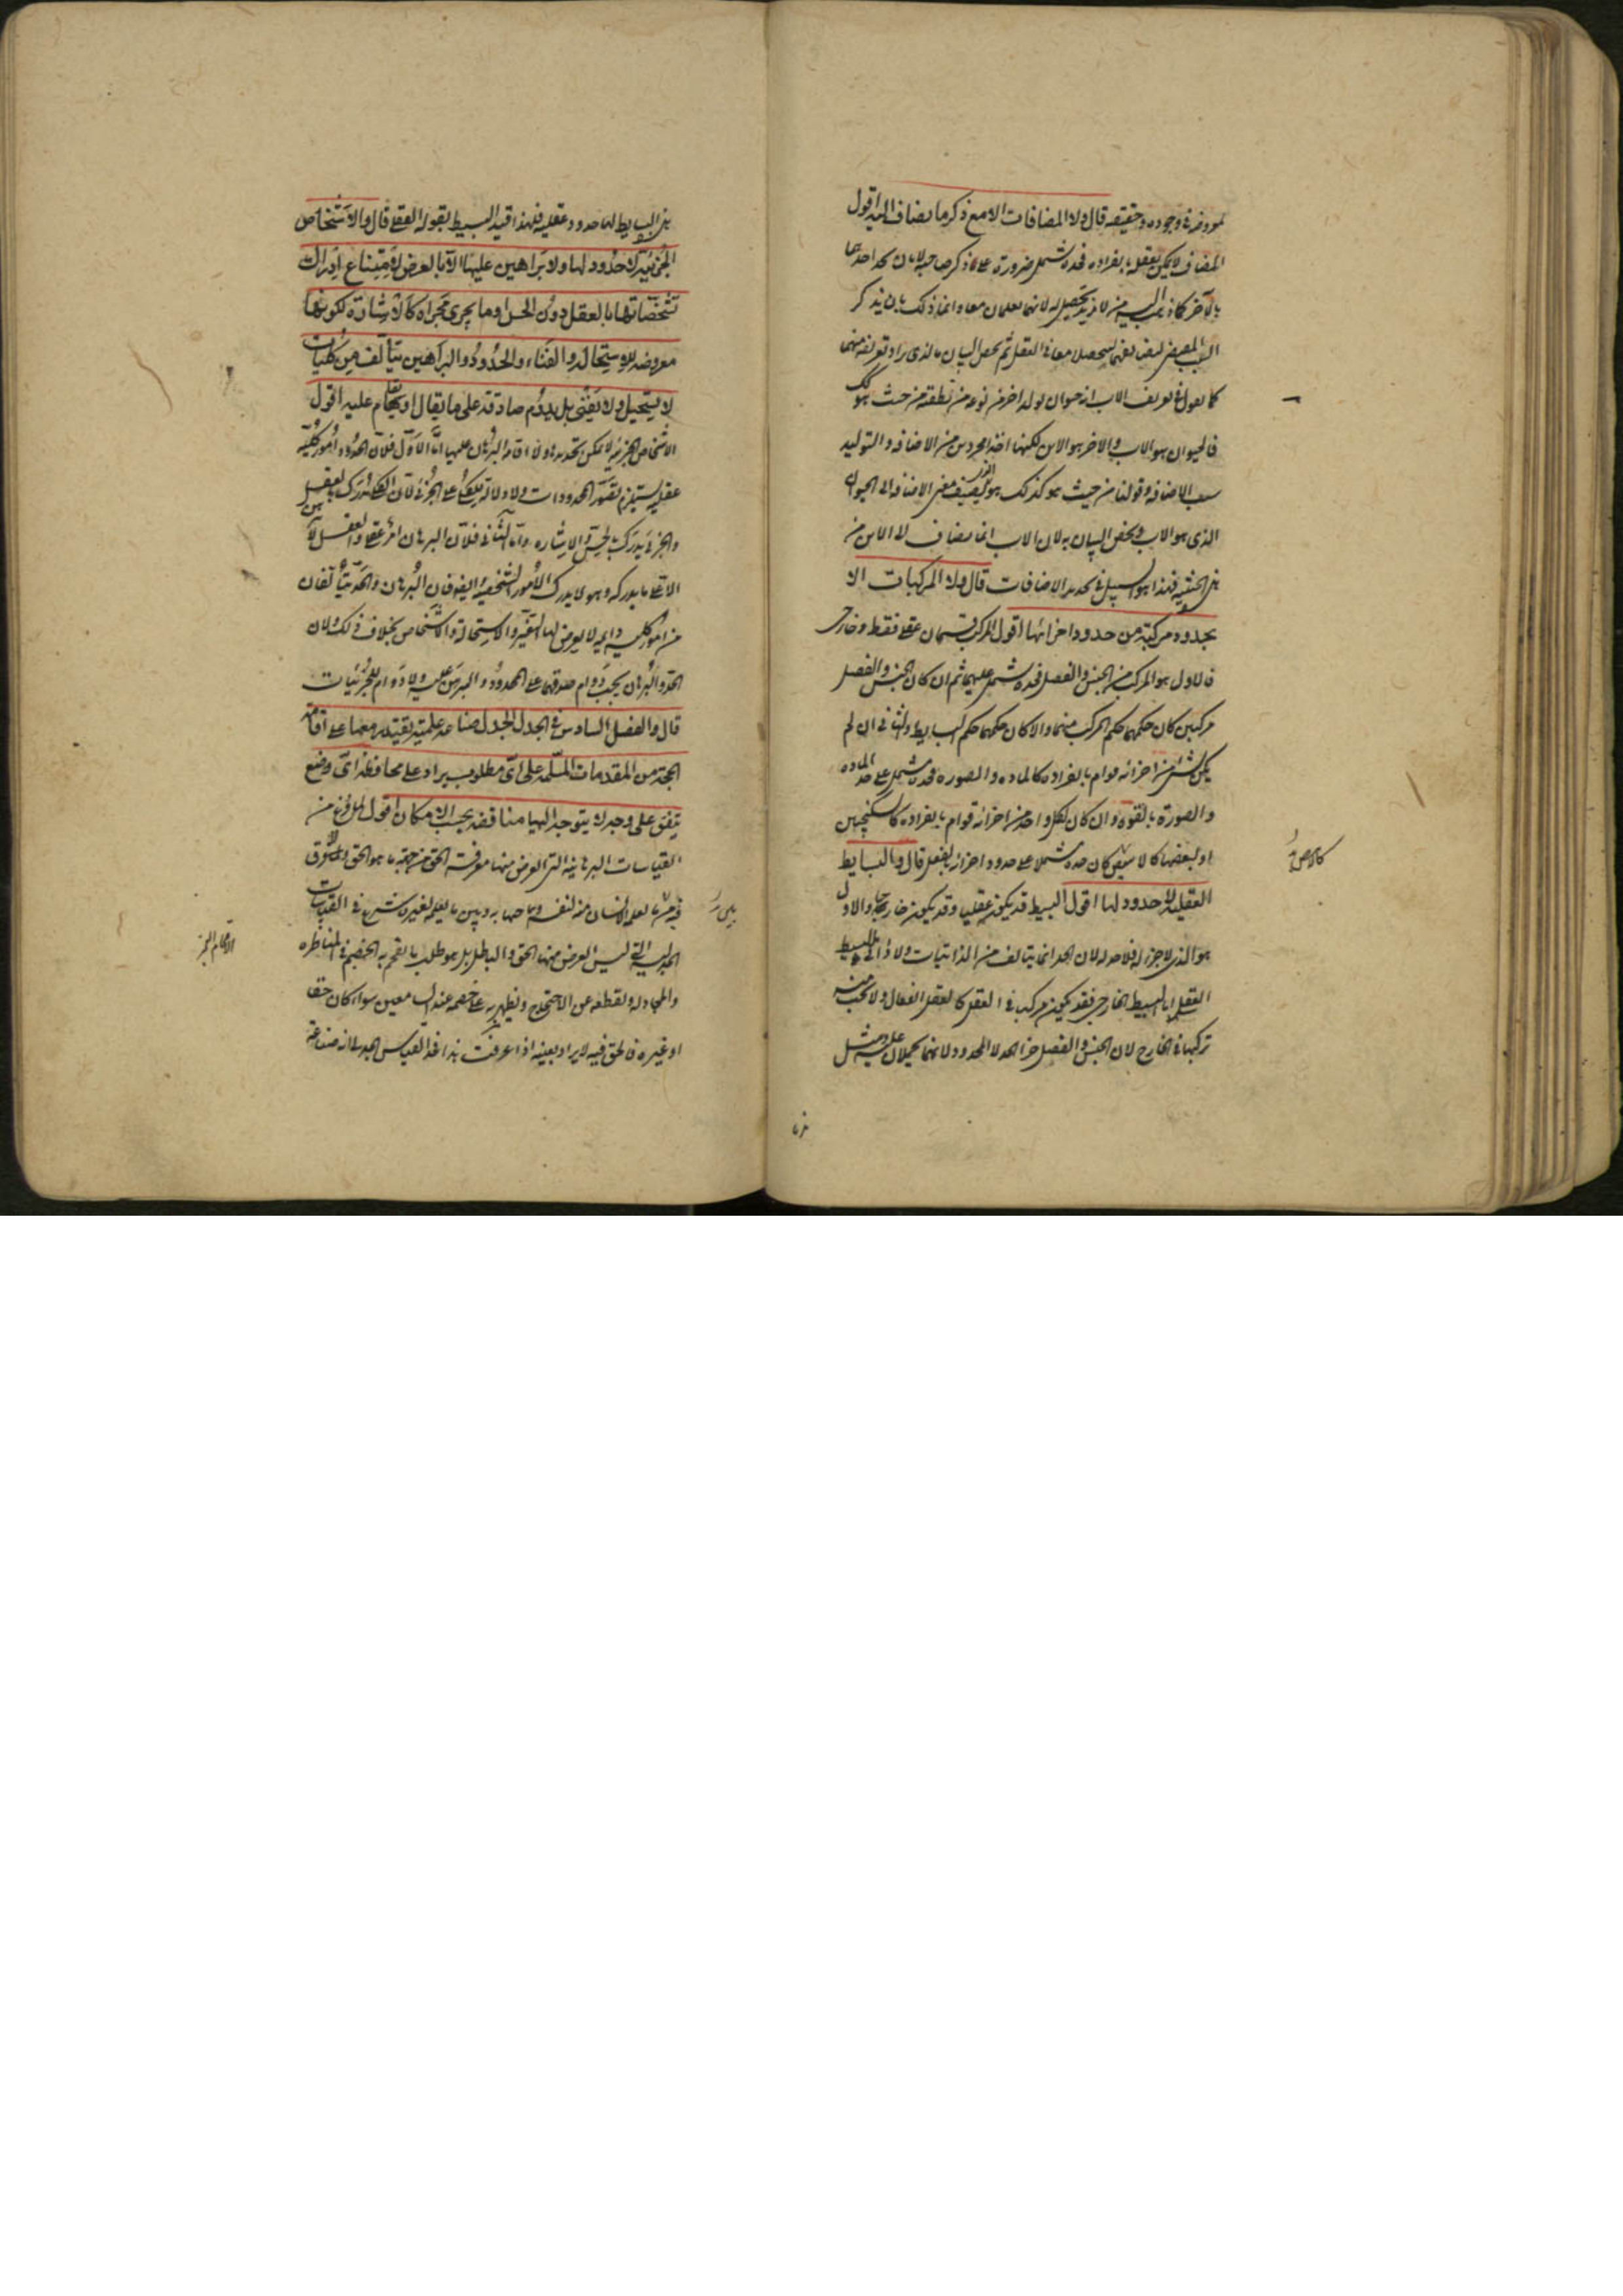 لمعروضه في وجوده وحقيقته قال ولا المضافات الا مع ذكر ما يضاف اليه اقول
المضاف لا يمكن تعقله بانفراده فحده يشتمل ضرورة على ذكر صاحبه لا بان يحد احدهما
بالآخر
السبب المقتضي لتضايفهما ليتحصلا معا في العقل ثم يخص البيان بالذي يراد تعريفه منهما
كما يقول في تعريف الاب انه حيوان يولد اخر من نوعه من نطفته من حيث هو كذلك
فالحيوان هو الاب والاخر هو الابن لكنهما اخذا مجردين من الاضافة والتوليد
سبب الاضافة وقولنا من حيث هو كذلك هو الذي يضيف معنى الاضافة الى الحيوان
الذي هو الاب ويخص البيان به لان الاب انما يضاف الى الابن من
هذه الحيثية فهذا هو السبيل في تحديد الاضافات قال ولا المركبات الا
بحدود مركبة من حدود اجزائها اقول المركب قسمان عقلي فقط وخارجي
فالاول هو المركب من الجنس والفصل فحده يشتمل عليهما ثم ان كان الجنس والفصل
مركبين كان حكمهما حكم المركب منهما والا كان حكمهما حكم البسايط والثاني ان لم
يكن لشيء من اجزائه قوام بانفراده كالمادة والصورة فحده يشتمل على حد المادة
والصورة بالقوة وان كان لكل واحد من اجزائه قوام بانفراده كالسكنجبين
او لبعضها كالابيض كان حده مشتملا على حدود اجزائه بالفعل قال والبسايط
العقلية لا حدود لها اقول البسيط قد يكون عقليا وقد يكون خارجيا والاول
هو الذي لا جزء له فلا حد له لان الحد انما يتالف من الذاتيات ولا ذاتي للبسيط
العقلي اما البسيط الخارجي فقد يكون مركبا في العقل كالعقل الفعال ولا يجب منه
تركبها في الخارج لان الجنس والفصل جزءا الحد لا المحدود لانهما يحملان عليه ومثل
هذه البسايط لها حدود عقلية فلهذا قيد البسيط بقوله العقلي قال والاشخاص
الجزئية لا حدود لها ولا براهين عليها الا بالعرض لامتناع ادراك
تشخصاتها بالعقل دون الحس او ما يجري مجراه كالاشارة لكونها
معروضة للاستحالة والفناء والحدود والبراهين يتالف من كليات
لا يستحيل ولا يفنى بل يدوم صادقة على ما يقال او يقام عليه اقول
الاشخاص الجزئية لا يمكن تحديدها ولا اقامة البرهان عليها اما الاول فلان الحدود امور كلية
عقلية يستلزم تصور المحدودات ولا دلالة للكلي على الجزئي لان الكلي يدرك بالعقل
والجزئي يدرك بالحس والاشارة واما الثاني فلان البرهان امر عقلي والعقل لا يبرهن
الا على ما يدركه وهو لا يدرك الامور الشخصية ايضا فان البرهان والحد يتالفان
من امور كلية دايمة لا يعرض لها التغير والاستحالة والاشخاص بخلاف ذلك ولان
الحد والبرهان يجب دوام صدقهما على المحدود والمبرهن عليه ولا دوام للجزئيات
قال والفصل السادس في الجدل الجدل صناعة علمية يقتدر معها على اقامة
الحجة من المقدمات المسلمة على اي مطلوب يراد وعلى محافظة اي وضع
يتفق على وجه لا يتوجه اليها مناقضة بحسب الامكان اقول لما فرغ من
القياسات البرهانية التي الغرض منها معرفة الحق من جهة ما هو الحق
الجدلية التي ليس الغرض منها الحق والباطل بل هو طلب ما يفحم به الخصم في المناظرة
والمجادلة ويقطعه عن الاحتجاج ويظهر به على خصمه عند السامعين سواء كان حقا
او غيره